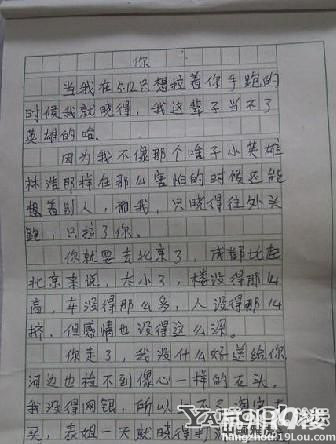 你
当我在512只想拉着你手跑的
时候我就晓得,我这辈子当不了
英雄的哈.
因为我不像那个啥子小英雄
林浩那样在那么害怕的时候还能
想着别人,而我,只晓得往外头
跑,只拉了你.
你就要去北京了,成都比起
北京来说,太小了,楼没得那儿
高,车没得那么多,人没得那儿
挤,但感情也没得这么深.
你走了,我没什么好送给你
河边也捡不到像心一样的石头.
我没得网银,所以
买,表姐一天就晓得
杭州19楼
hangzhou.19lou.com